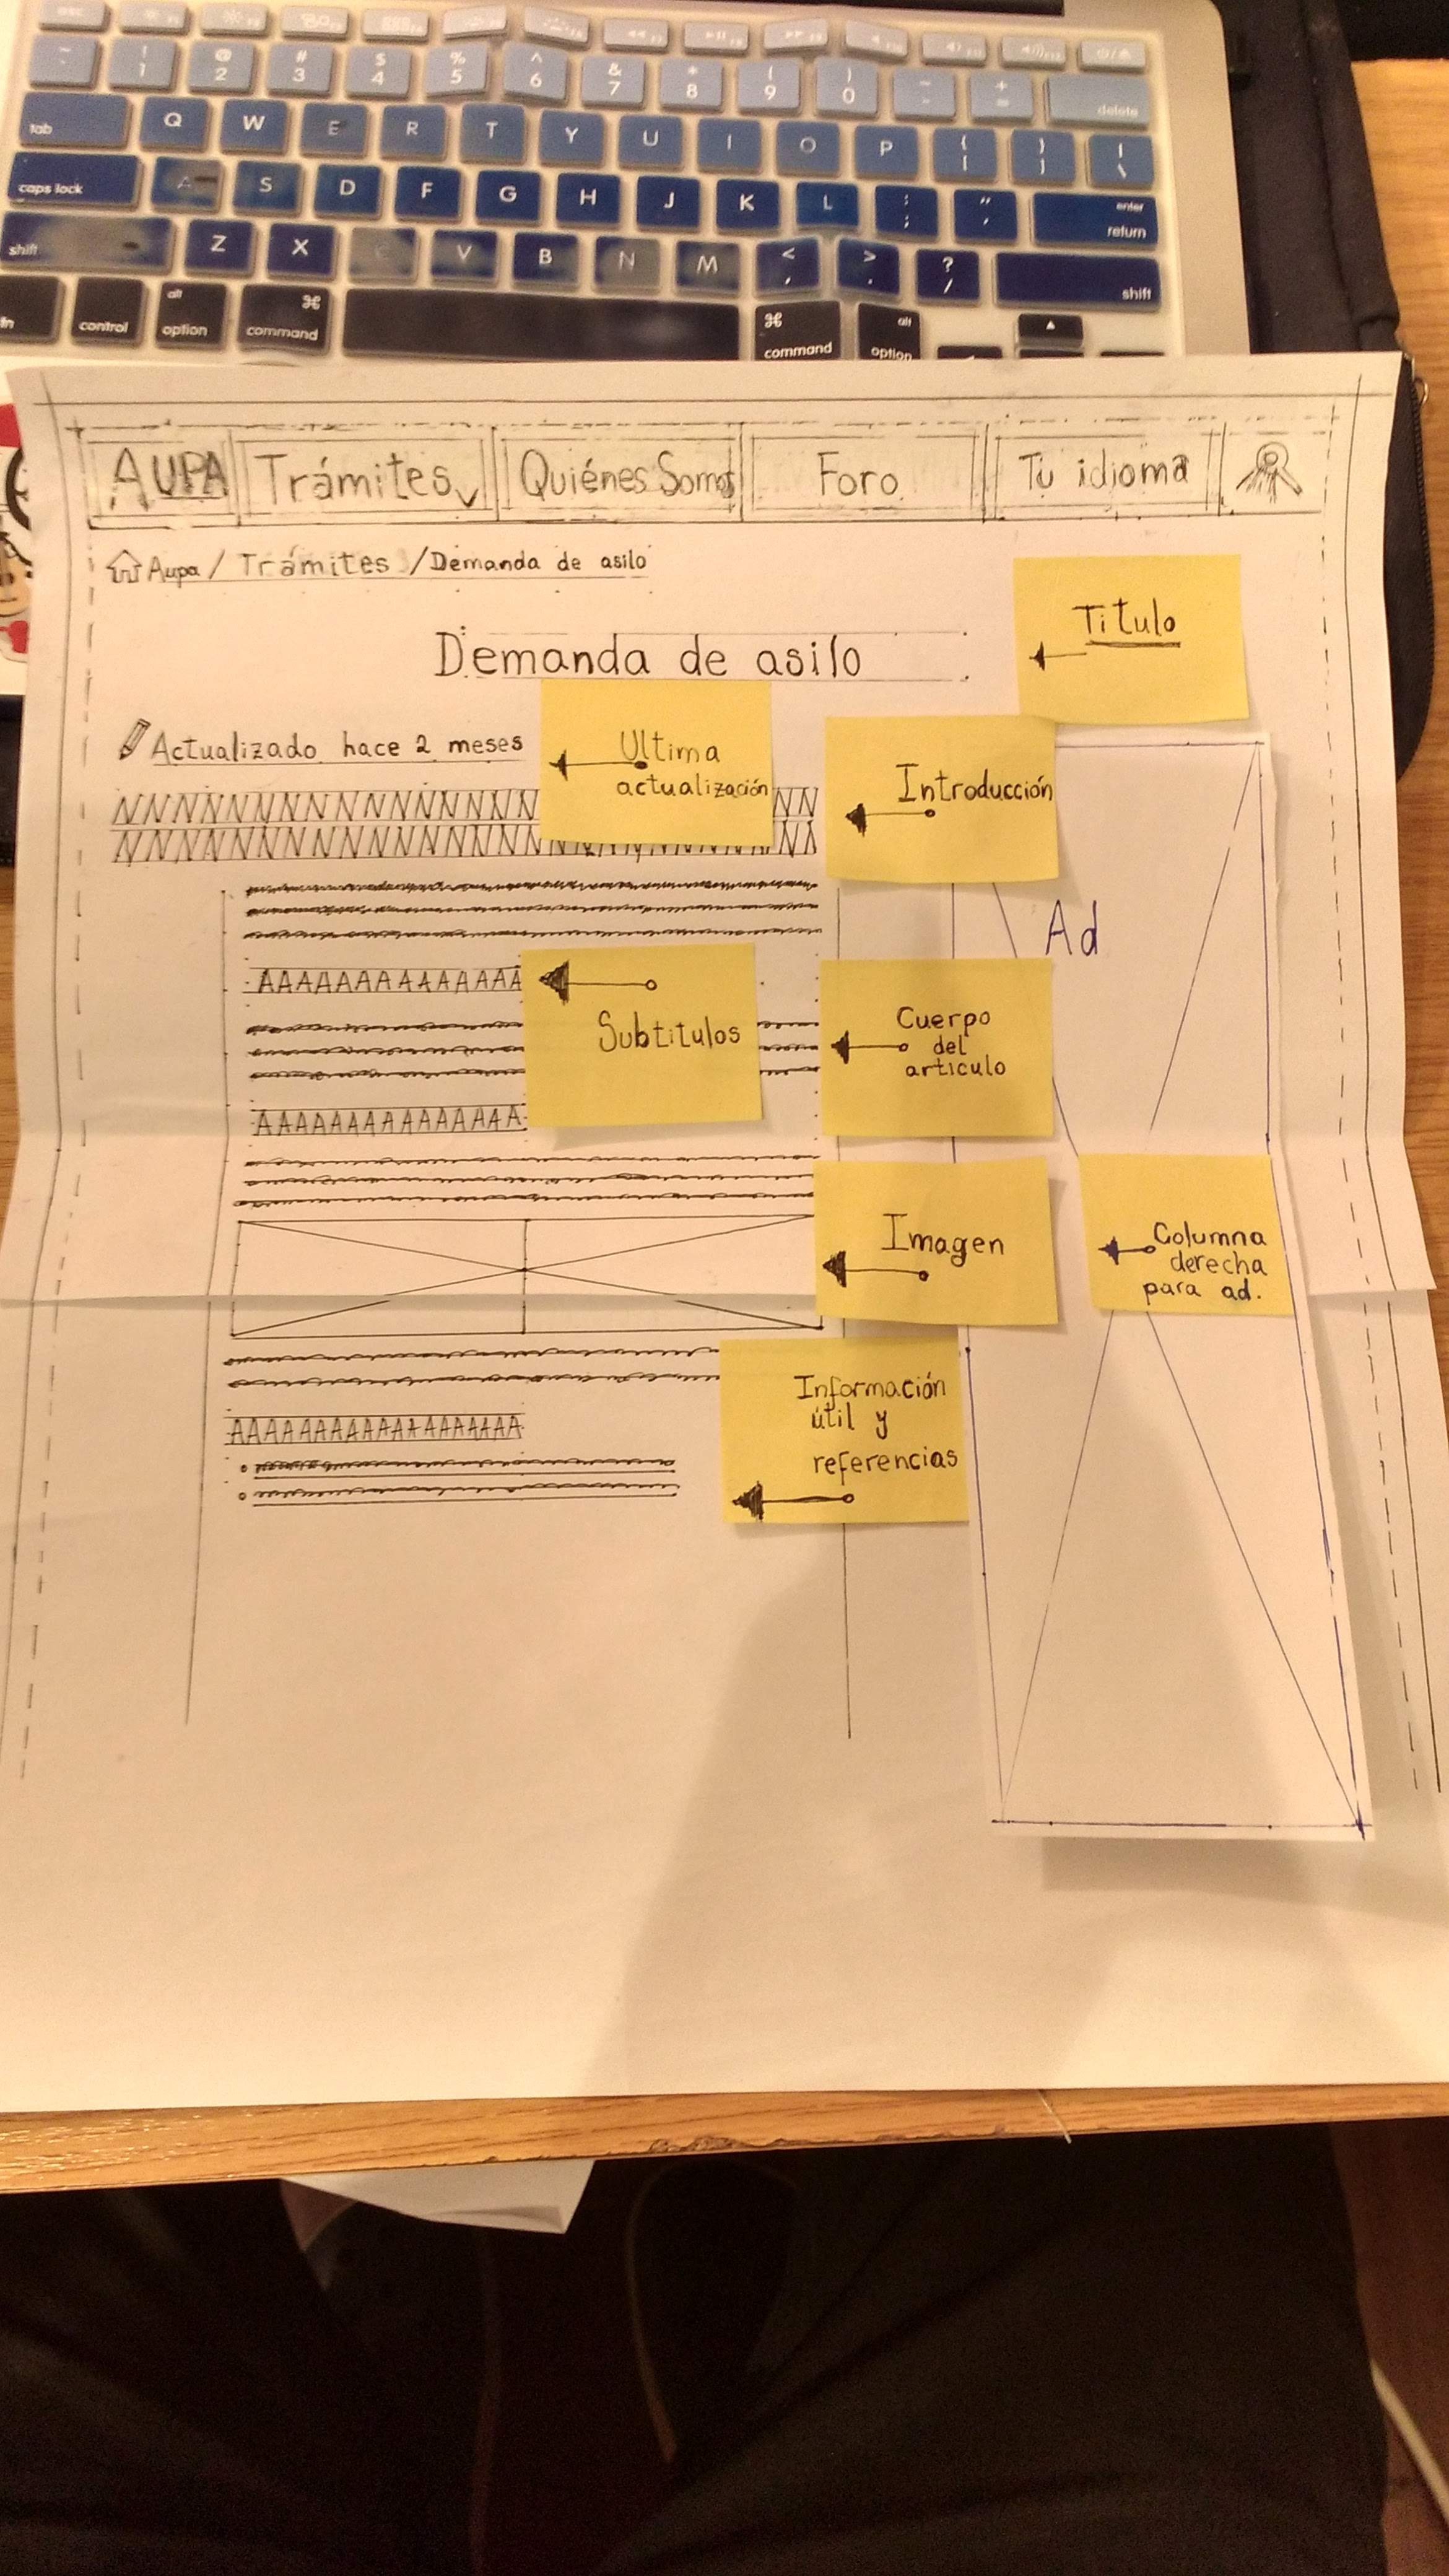 esc
~ ! @ # $ % ^ & * ( ) - +
` 1 2 3 4 5 6 7 8 9 0 - = delete
tab Q W E R T Y U I O P { [ } ] | \
caps lock A S D F G H J K L : ; " ' enter return
shift Z X C V B N M < , > . ? / shift
fn control alt option ⌘ command ⌘ command alt option
AUPA Trámites Quiénes Somos Foro Tu idioma
Aupa / Trámites / Demanda de asilo
Titulo
Demanda de asilo
Actualizado hace 2 meses
Ultima
actualización
Introducción
NNNNNNNNNNNNNNNNN
NNNNNNNNNNNNNNNNN
Ad
AAAAAAAAAAAAAA
Subtitulos
Cuerpo
del
articulo
AAAAAAAAAAAAAAA
Imagen
Columna
derecha
para ad.
Información
útil y
referencias
AAAAAAAAAAAAAAAAA